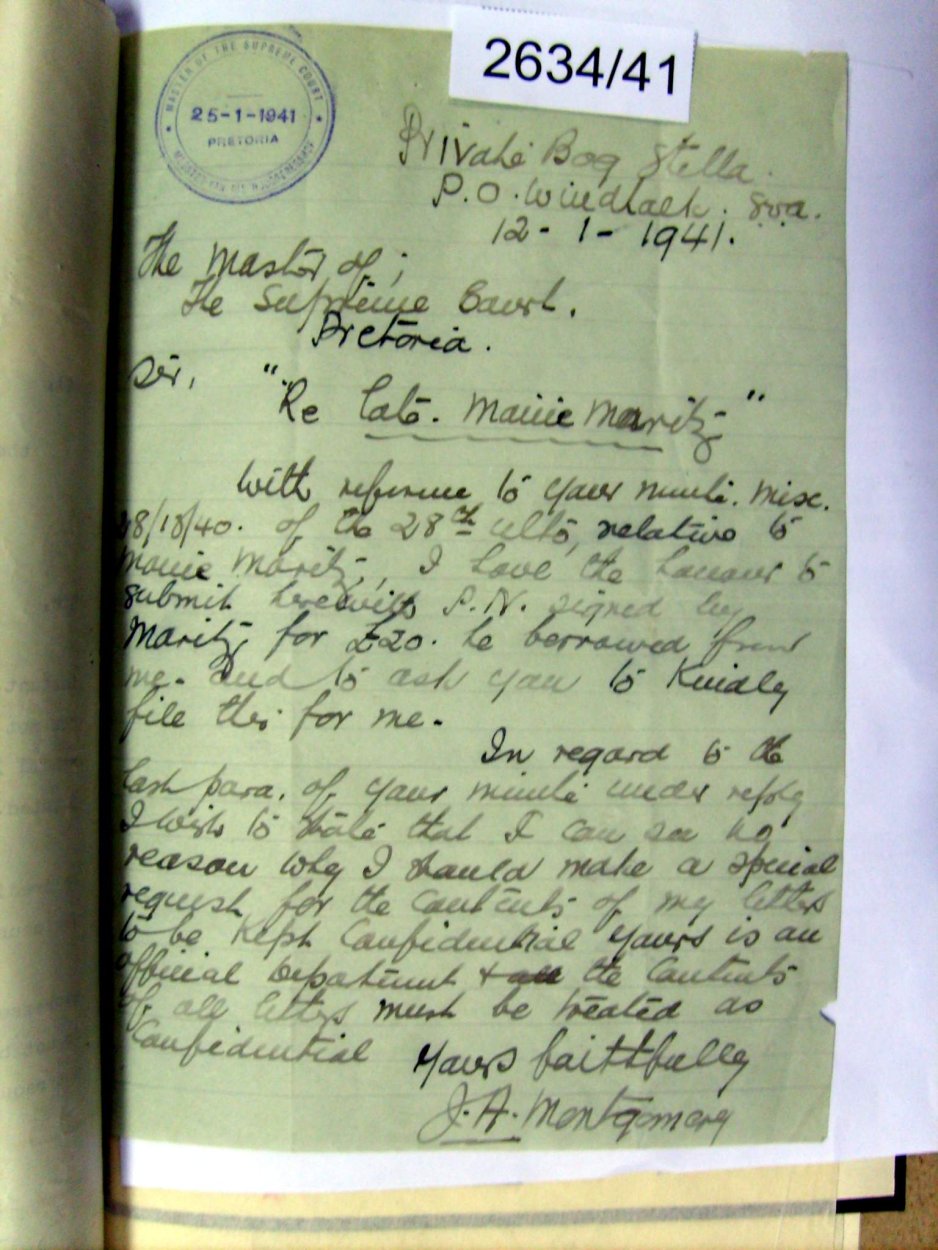 2634/41
MASTER OF THE SUPREME COURT
25-1-1941
PRETORIA
Private Bag Stella.
P.O. Windhoek. S.W.A.
12-1-1941.
The Master of;
The Supreme Court.
Pretoria.
Sir,
"Re Late. Manie Maritz"
With reference to your minute. Misc.
8/18/40. of the 28th ulto, relative to
Manie Maritz, I have the honour to
submit herewith P.N. signed by
Maritz for £20. he borrowed from
me. and to ask you to kindly
file this for me.
In regard to the
last para. of your minute under reply
I wish to state that I can see no
reason why I should make a special
request for the contents of my letters
to be kept confidential yours is an
official Department + all the contents
of all letters must be treated as
Confidential
Yours faithfully
J.A. Montgomery